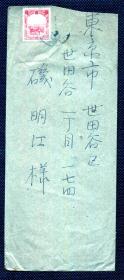 東京市 世田谷区
世田谷一丁目一七四
磯 明江様